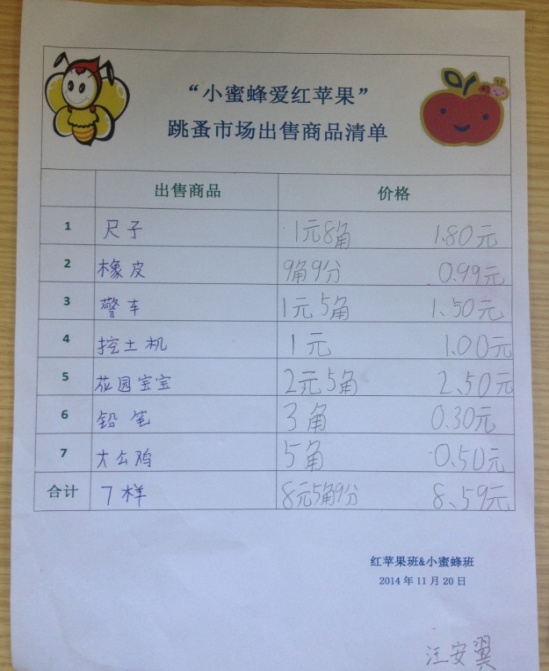 “小蜜蜂爱红苹果”
跳蚤市场出售商品清单
出售商品 价格
1 尺子 1元8角 1.80元
2 橡皮 9角9分 0.99元
3 警车 1元5角 1.50元
4 挖土机 1元 1.00元
5 花园宝宝 2元5角 2.50元
6 铅笔 3角 0.30元
7 大公鸡 5角 0.50元
合计 7样 8元5角9分 8.59元
红苹果班&小蜜蜂班
2014年11月20日
汪安翼